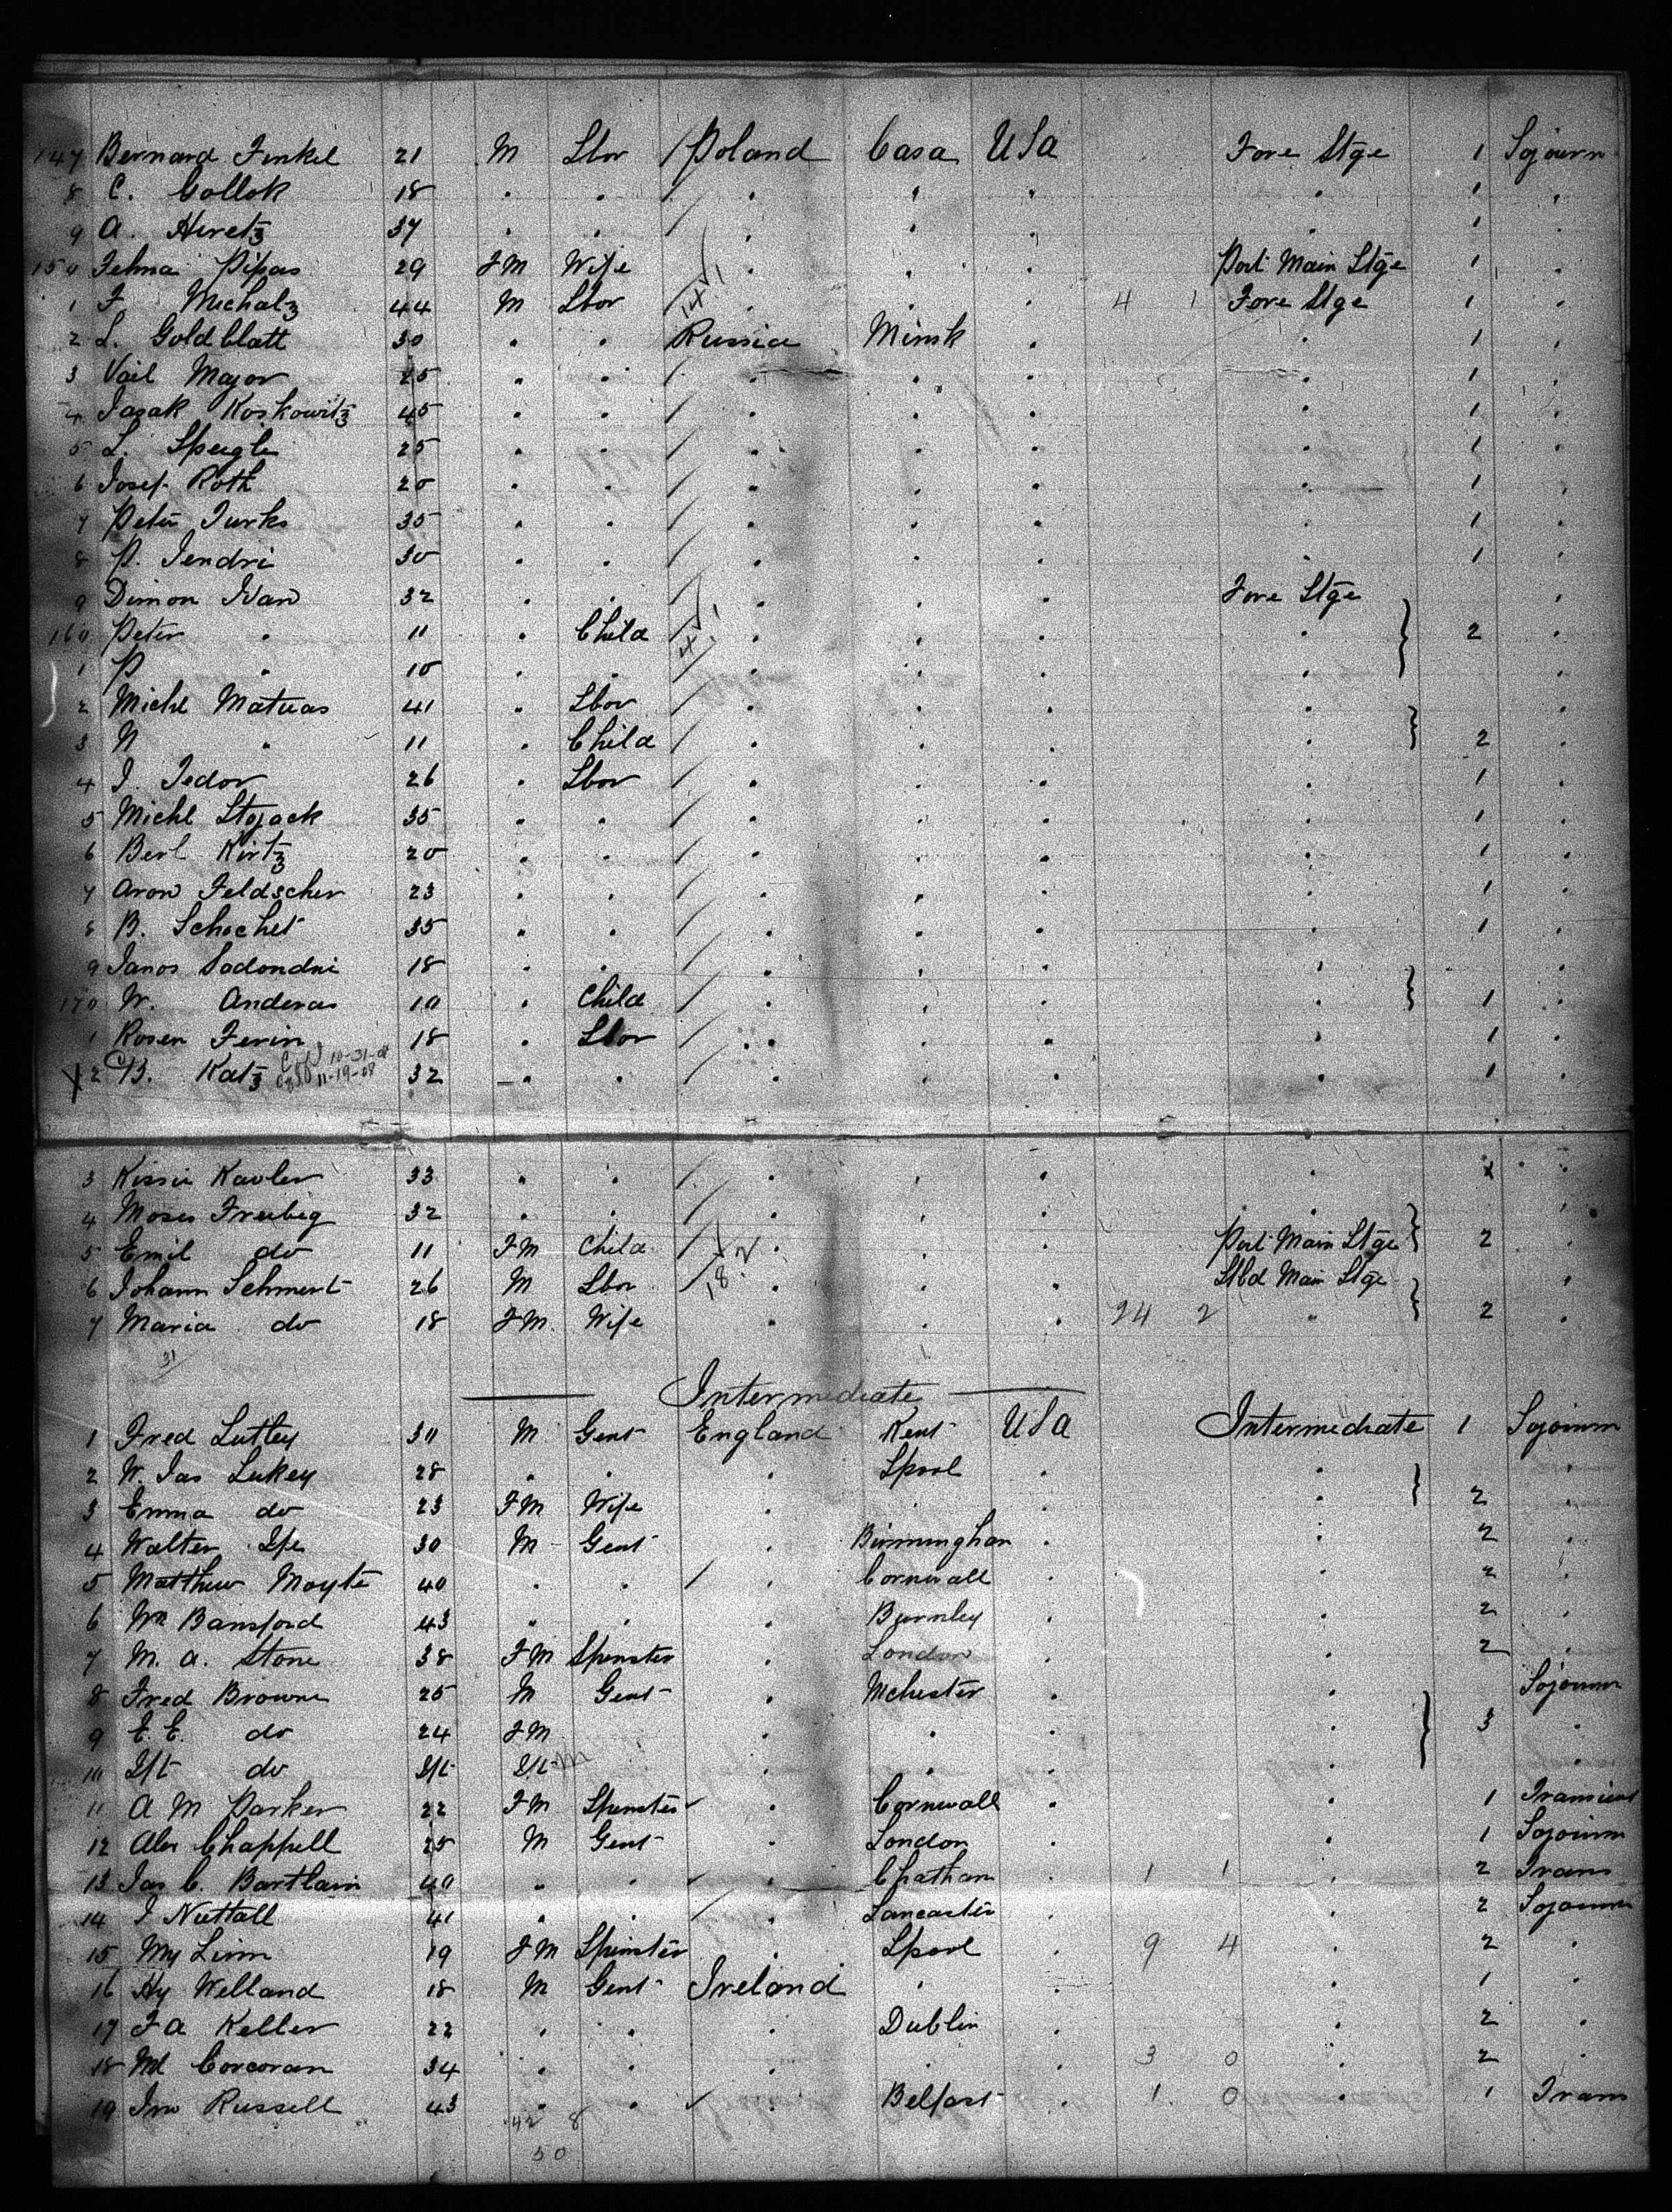 147 Bernard Finkel 21 M Lbr Poland Casa USa Fore Stge 1 Sojourn
8 C. Gollok 18 " " " " " " 1 "
9 A. Hiretz 37 " " " " " " 1 "
150 29 FM Wife " " " Port Main Stge 1 "
1 F Michalz 44 M Lbor 14 1 " " " 4 1 Fore Stge 1 "
2 L. Goldblatt 30 " " Russia Minsk " " 1 "
3 Vail Major 25 " " " " " " 1 "
4 Isaak Koskowitz 45 " " " " " " 1 "
5 L. Spiegle 25 " " " " " " 1 "
6 Josef Roth 20 " " " " " " 1 "
7 Peter Turks 35 " " " " " " 1 "
8 P. Jendri 30 " " " " " " 1 "
9 Dimon Ivan 32 " " " " " Fore Stge "
160 Peter " 11 " Child 4 1 " " " " 2 "
1 P " 10 " " " " " " "
2 Michl Matuas 41 " Lbor " " " " "
3 N " 11 " Child " " " " 2 "
4 J. Fedor 26 " Lbor " " " " 1 "
5 Michl Stojack 35 " " " " " " 1 "
6 Berl Kirtz 20 " " " " " " 1 "
7 Aron Feldscher 23 " " " " " " 1 "
8 B. Schochet 35 " " " " " " 1 "
9 Janos 18 " " " " " " "
170 W. Anderas 10 " Child " " " " 1 "
1 Rosen Ferin 18 " Lbor " " " " 1 "
X 2 B. Katz 10-31-08 11-19-08 32 " " " " " " 1 "
3 Kissie Kavler 33 " " " " " " 1 "
4 Moses Freibig 32 " " " " " " "
5 Emil do 11 FM Child " " " Port Main Stge 2 "
6 Johann Schmert 26 M Lbor 18 2 " " " Stbd Main Stge "
7 Maria do 18 FM Wife " " " 24 2 " 2 "
31
Intermediate
1 Fred Luttey 30 M Gent England Kent USa Intermediate 1 Sojourn
2 W. Jas Lukey 28 " " " Lpool " " "
3 Emma do 23 FM Wife " " " " 2 "
4 Walter 30 M Gent " Birmingham " " 2 "
5 Matthew Moyle 40 " " " Cornwall " " 2 "
6 Wm Bansford 43 " " " Burnley " " 2 "
7 M. A. Stone 38 FM Spinster " London " " 2 "
8 Fred Browne 25 M Gent " Mchester " " Sojourn
9 E. E. do 24 FM " " " " 3 "
10 Ift do Ift Ift M " " " " "
11 A M Parker 22 FM Spinster " Cornwall " " 1 Transient
12 Alex Chappell 25 M Gent " London " " 1 Sojourn
13 Jas C. Bartlain 40 " " " Chatham " 1 1 " 2 Trans
14 J Nuttall 41 " " " Lancaster " " 2 Sojourn
15 My Linn 19 FM Spinster " Lpool " 9 4 " 2 "
16 Hy Welland 18 M Gent Ireland " " " 1 "
17 F A Keller 22 " " " Dublin " " 2 "
18 Ml Corcoran 34 " " " " " 3 0 " 2 "
19 Jno Russell 43 " " " Belfast " 1 0 " 1 Trans
42 8
50